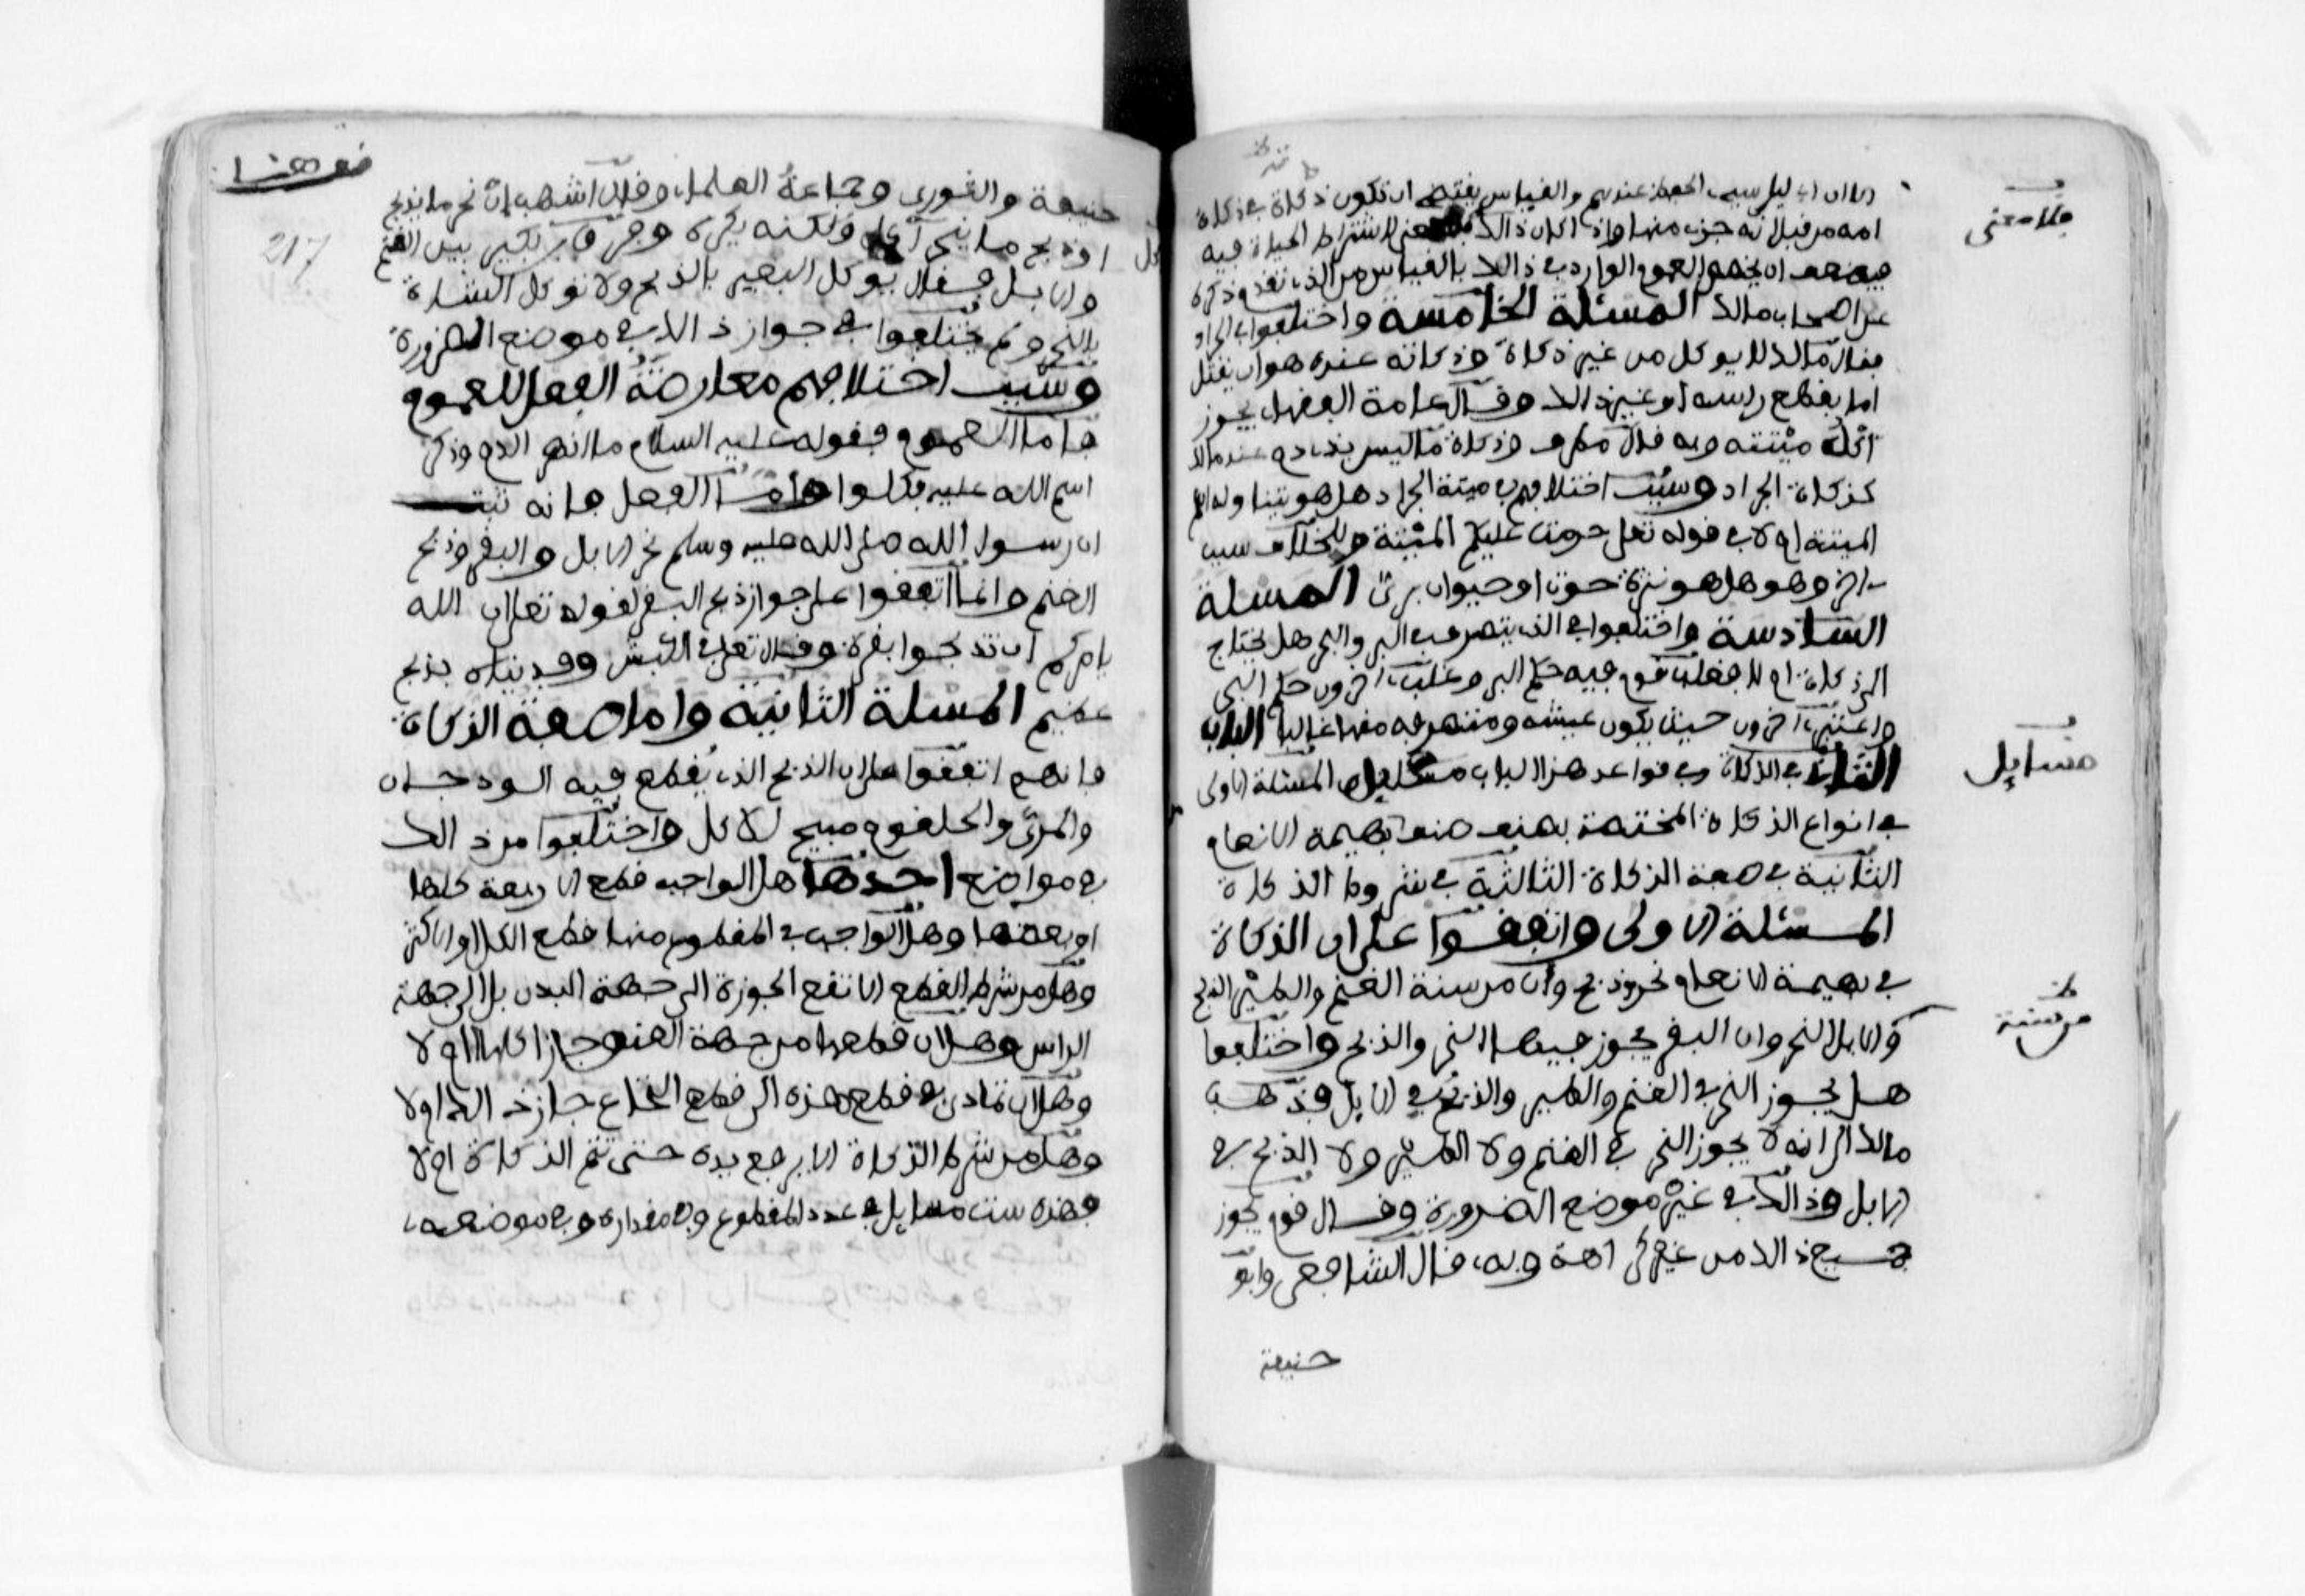 لان ابن ابي ليلى سيء الحفظ عندهم والقياس يقتضي ان تكون ذكاته في ذكاة
امه من قبل انه جزء منها واذا كان ذالك فلا معنى لاشتراط الحياة فيه
فيضعف ان يخصص العموم الوارد في ذالك بالقياس الذي تقدم ذكره
عن اصحاب مالك المسئلة الخامسة واختلفوا في الجراد
فقال مالك لا يوكل من غير ذكاة وذكاته عنده هو ان يقتل
اما بقطع راسه او غير ذالك وقال عامة الفقهاء يجوز
اكل ميتته وبه قال مطرف وذكاة ما ليس بذي دم عند مالك
كذكاة الجراد وسبب اختلافهم في ميتة الجراد هل هو يتناوله اسم
الميتة ام لا في قوله تعلى حرمت عليكم الميتة وللخلاف سبب
ءاخر وهو هل هو نثرة حوت او حيوان بري المسلة
السادسة واختلفوا في الذي يتصرف في البر والبحر هل يحتاج
الى ذكاة ام لا فغلب قوم فيه حكم البر وغلب ءاخرون حكم البحر
واعتبر ءاخرون حيث يكون عيشه ومتصرفه منهما غالبا الباب
الثاني في الذكاة وفي قواعد هذا الباب مسئلتان المسئلة الاولى
في انواع الذكاة المختصة بصنف صنف من بهيمة الانعام
الثانية في صفة الذكاة الثالثة في شروط الذكاة
المسئلة الاولى واتفقوا على ان الذكاة
في بهيمة الانعام نحر وذبح وان من سنة الغنم والطير الذبح
وفي الابل النحر وان البقر يجوز فيها النحر والذبح واختلفوا
هل يجوز النحر في الغنم والطير والذبح في الابل فذهب
مالك الى انه لا يجوز النحر في الغنم ولا الطير ولا الذبح في
الابل وذالك في غير موضع الضرورة وقال قوم يجوز
جميع ذالك من غير كراهة وبه قال الشافعي وابو
حنيفة
فلا معنى
مسايل
من سنة
قف هنا
217
حنيفة والثوري وجماعة العلماء وقال اشهب ان نحر ما يذبح
او ذبح ما ينحر اكل ولكنه يكره وفرق ابن بكير بين الغنم
والابل فقال يوكل البعير بالذبح ولا توكل الشاة
بالنحر ولم يختلفوا في جواز ذالك في موضع الضرورة
وسبب اختلافهم معارضة الفعل للعموم
فاما العموم فقوله عليه السلام ما انهر الدم وذكر
اسم الله عليه فكلوا واما الفعل فانه ثبت
ان رسول الله صلى الله عليه وسلم نحر الابل والبقر وذبح
الغنم وانما اتفقوا على جواز ذبح البقر لقوله تعلى ان الله
يامركم ان تذبحوا بقرة وقال تعلى في الكبش وفديناه بذبح
عظيم المسلة الثانية واما صفة الذكاة
فانهم اتفقوا على ان الذبح الذي يقطع فيه الودجان
والمرئ والحلقوم مبيح للاكل واختلفوا من ذالك
في مواضع احدها هل الواجب قطع الاربعة كلها
او بعضها وهل الواجب في المقطوع منها قطع الكل او الاكثر
وهل من شرط القطع الا تقع الجوزة الى جهة البدن بل الى جهة
الراس وهل ان قطعها من جهة العنق جاز اكلها ام لا
وهل ان تمادى في قطع هذه الى قطع النخاع جاز ذالك ام لا
وهل من شرط الذكاة الا يرفع يده حتى تتم الذكاة ام لا
فهذه ست مسايل في عدد المقطوع وفي مقداره وفي موضعه